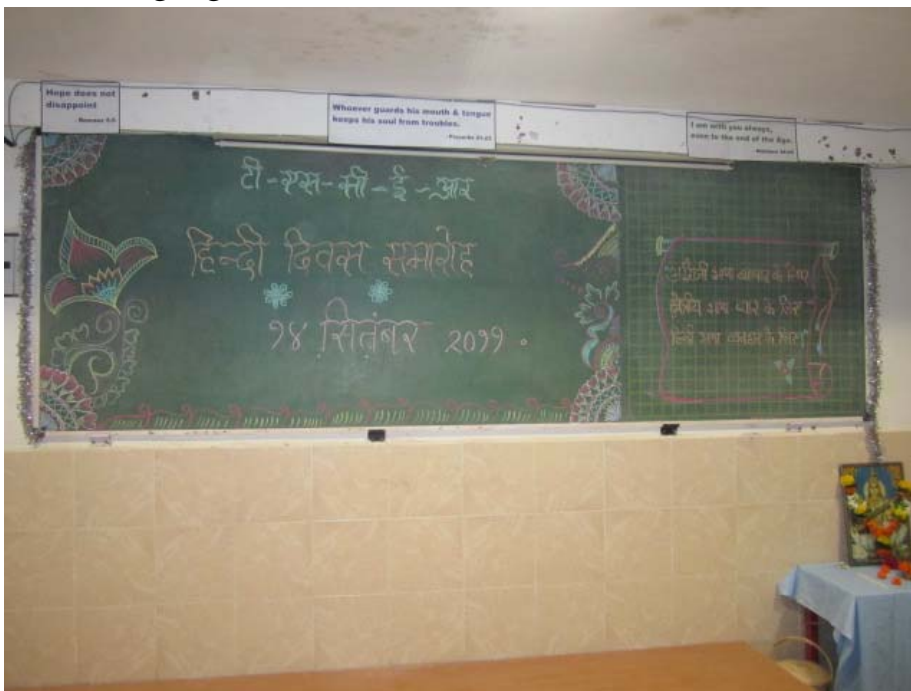 Hope does not
disappoint
- Romans 5:5
Whoever guards his mouth & tongue
keeps his soul from troubles.
- Proverbs 21:23
I am with you always,
even to the end of the Age.
- Matthew 28:20
टी-एस-सी-ई-आर
हिन्दी दिवस समारोह
१४ सितंबर २०११.
भाषा व्यापार के लिए
क्षेत्रीय भाषा प्यार के लिए
हिन्दी भाषा व्यवहार के लिए